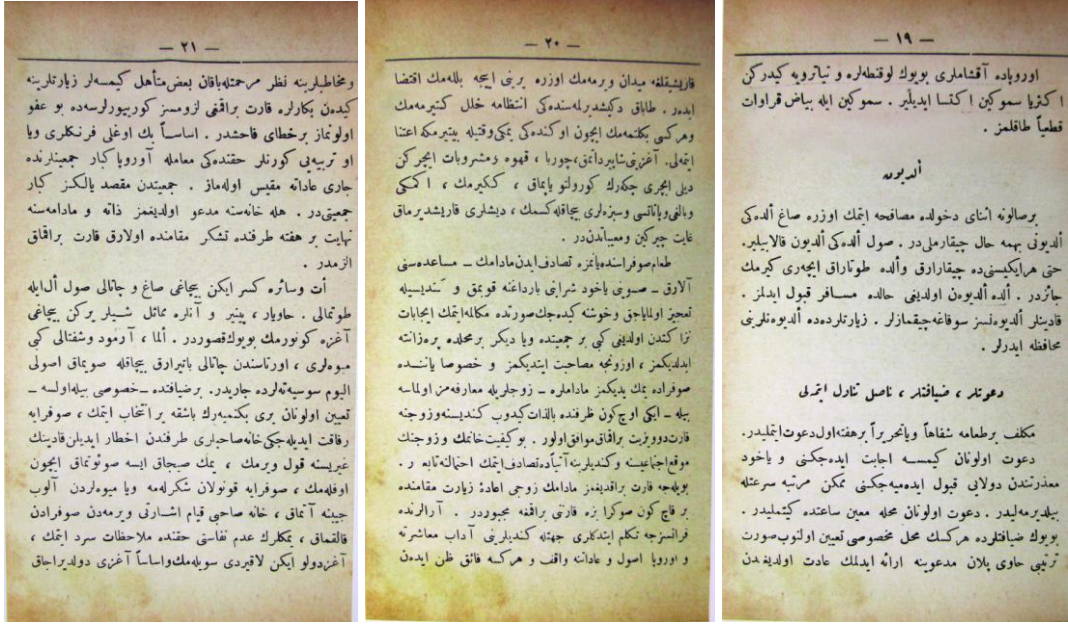 — ١٩ —
اوروپاده آقشاملری بویوك لوقنطه‌لره و تیاترویه كیدركن
اكثریا سموكین اكتسا ایدیلیر . سموكین ایله بیاض قراوات
قطعیاً طاقلمز .
ألدیون
برصالونه اثنای دخولده مصافحه ایتمك اوزره صاغ ألده‌كی
ألدیونی بهمه حال چیقارملی‌در . صول ألده‌كی ألدیون قالابیلیر.
حتی هرایكیسنی‌ده چیقارارق وألده طوتاراق ایچه‌ری كیرمك
جائزدر . ألده ألدیوه‌ن اولدیغی حالده مسافر قبول ایدلمز .
قادینلر ألدیوه‌نسز سوقاغه‌چیقمازلر . زیارتلرده‌ده ألدیوه‌نلرینی
محافظه ایدرلر .
دعوتلر ، ضیافتلر ، ناصل تناول ایتملی
مكلف برطعامه شفاهاً ویاتحریراً برهفته‌اول‌دعوت‌ایتملیدر.
دعوت اولونان كیمسه اجابت ایده‌جكنی و یاخود
معذرتندن دولایی قبول ایده‌میه‌جكنی ممكن مرتبه سرعتله
بیلدیرمه‌لیدر . دعوت اولونان محله معین ساعتده كیتملیدر .
بویوك ضیافتلرده هركسك محل مخصوصی تعیین اولنوب‌صورت
ترتیبی حاوی پلان مدعوینه ارائه ایدلمك عادت اولدیغندن
— ٢٠ —
قاریشیقلغه میدان ویرمه‌مك اوزره یرینی اییجه بلله‌مك اقتضا
ایدەر . طاباق دكیشدیرلمه‌سنده‌كی انتظامه خلل كتیرمه‌مك
وهركسی بكلتمه‌مك ایچون اوكنده‌كی یمكی‌وقتیله بیتیرمكه اعتنا
ایتملی. آغزینی‌شاپیرداتمق،چوربا ، قهوه ومشروبات ایچركن
دیلی ایچری چكه‌رك كورولتو یاپماق ، ككیرمك ، اكمكی
وبالغی‌وپاتاتسی وسبزه‌لری بیچاقله‌كسمك ، دیشلری قاریشدیرماق
غایت چیركین ومعیباتدن‌در .
طعام‌صوفراسنده‌یانمزه تصادف‌ایدن‌مادامك ـ مساعده‌سنی
آلارق ـ صوینی یاخود شرابنی بارداغنه قویمق و كندیسیله
تعجیز اولمایاجق وخوشنه كیده‌جك‌صورتده مكالمه‌ایتمك ایجابات
نزاكتدن اولدیغی كبی بر جمعیتده ویا دیكر برمحلده پره‌زانته
ایدلدیكمز ، اوزونجه مصاحبت ایتدیكمز و خصوصا یاننده
صوفراده یمك یدیكمز مادامله‌ره ـ زوجلریله معارفه‌مز اولماسه
بیله ـ ایكی اوچ‌كون ظرفنده بالذات كیدوب كندیسنه‌وزوجنه
قارت‌دوویزیت براقماق‌موافق‌اولور . بوكیفیت‌خانمك وزوجنك
موقع‌اجتماعیسنه وكندیلرینه آتیاًده‌تصادف‌ایتمك احتمالنه‌تابعدر.
بویله‌جه قارت براقدیغمز مادامك زوجی اعادهٔ زیارت مقامنده
بر قاچ كون صوكرا بزه قارتنی براقمغه مجبوردر . آرالرنده
فرانسزجه تكلم ایتدكلری جهتله كندیلرینی آداب معاشرته
و اوروپا اصول و عاداتنه واقف و هركسه فائق ظن ایده‌ن
— ٢١ —
ومخاطبلرینه نظر مرحمتله‌باقان بعض‌متأهل كیمسه‌لر زیارتلرینه
كیدن بكارلره قارت براقمغی لزومسز كورییورلرسه‌ده بو عفو
اولونماز برخطای فاحشدر . اساساً بك اوغلی فرنكلری ویا
او تربیه‌یی كورنلر حقنده‌كی معامله آوروپا كبار جمعیتلرنده
جاری عاداته مقیس اوله‌ماز . جمعیتدن مقصد یالكز كبار
جمعیتی‌در . هله خانه‌سنه مدعو اولدیغمز ذاته و مادامه‌سنه
نهایت بر هفته ظرفنده تشكر مقامنده اولارق قارت براقماق
الزمدر .
أت وسائره كسر ایكن بیچاغی صاغ و چاتالی صول أل‌ایله
طوتمالی . حاویار ، پینیر و آنلره مماثل شیلر یركن بیچاغی
آغزه كوتورمك بویوك‌قصوردر . ألما ، آرمود وشفتالی كبی
میوه‌لری ، اورتاسندن چاتالی باتیرارق بیچاقله صویماق اصولی
الیوم سوسیه‌ته‌لرده جاریدر. برضیافتده ـ خصوصی بیله‌اولسه ـ
تعیین اولونان یری بكنمیه‌رك باشقه یر انتخاب ایتمك ، صوفرایه
رفاقت ایدیله‌جكی خانه‌صاحبلری طرفندن اخطار ایدیلن‌قادینك
غیریسنه قول ویرمك ، یمك صیجاق ایسه صوئوتماق ایچون
اوفله‌مك ، صوفرایه قونولان شكرلمه ویا میوه‌لردن آلوب
جیبنه آتماق ، خانه صاحبی قیام اشارتی ویرمه‌دن صوفرادن
قالقماق ، یمكلرك عدم نفاستی حقنده ملاحظات سرد ایتمك ،
آغزدولو ایكن لاقیردی سویله‌مك‌واساساً آغزی دولدیراجاق